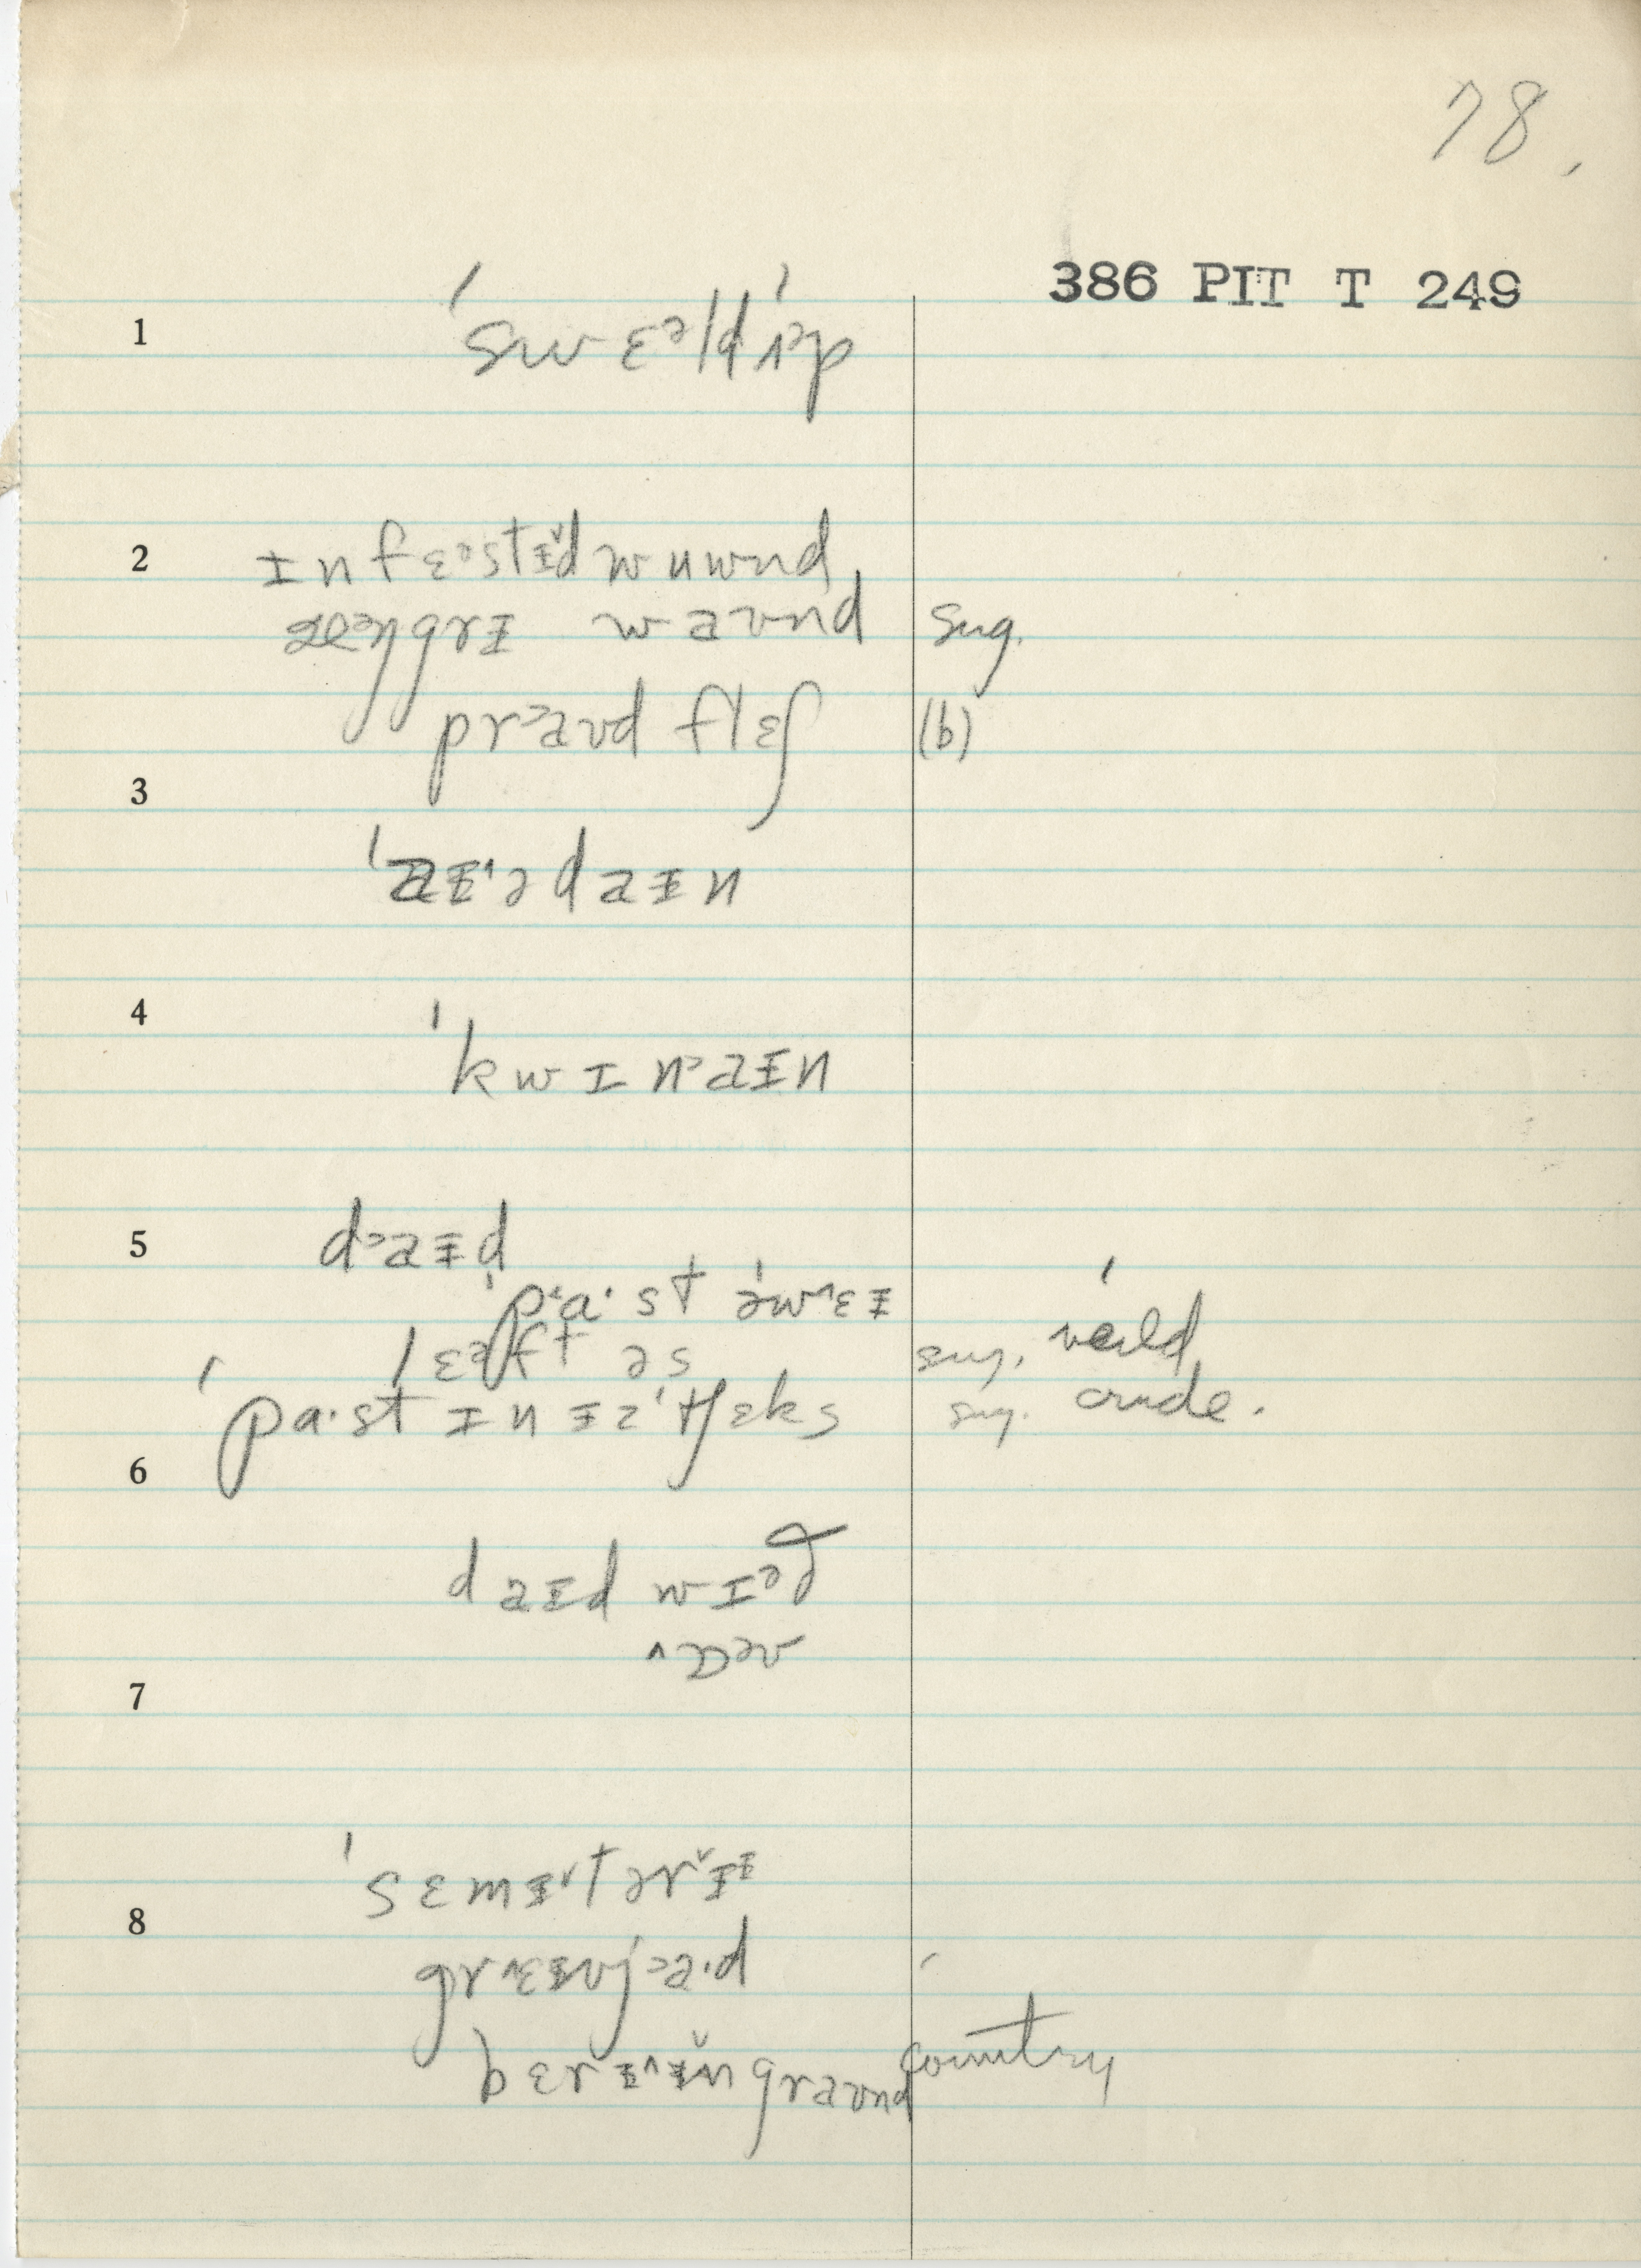 78.
386 PIT T 249
1
ˈswɛᵊld ˈʌp
2
ɪnfɛᵊstɪ̵̌d wuwnd
æᵊŋgrɪ̵ waʊnd sug.
praʊd flɛʃ (b)
3
ˈaɪ̵ədaɪ̵n
4
ˈkwɪn˃aɪ̵n
5
d˃aɪ̵d
ˈpa·st əˈwɛɪ̵
lɛᵊft əs sug. weuld
ˈpa·st ɪn ɪ̵z ˈtʃɛks sug. crude.
6
daɪ̵d wɪᵊθ
7
ˈsɛmɪ̵tərɪ̵
8
grɛɪ̵vj˃a·d
bɛrɪ̵ɪ̵n graʊnd country